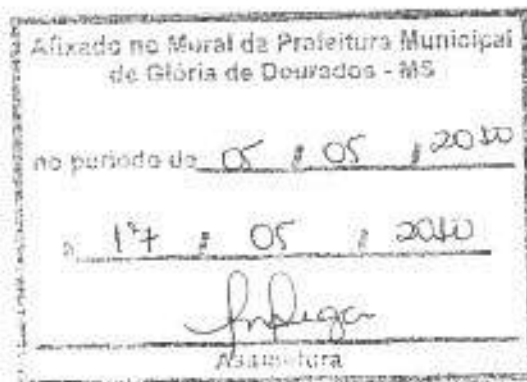 Afixado no Mural da Prefeitura Municipal
de Glória de Dourados - MS
no período de 05 / 05 / 2010
a 17 / 05 / 2010
Assinatura